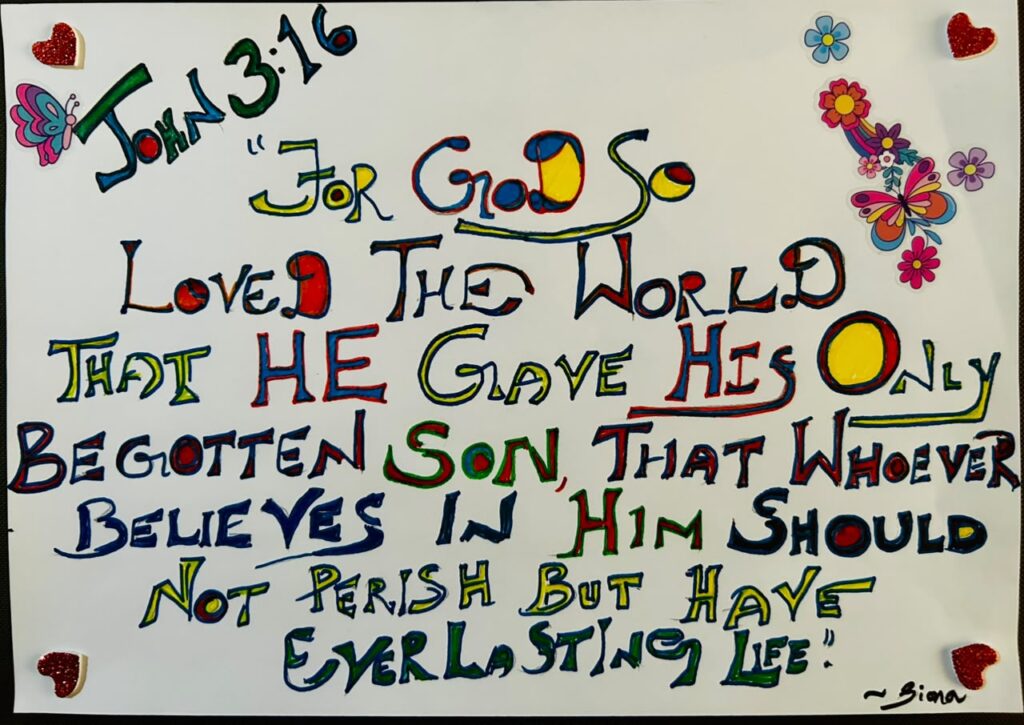 John 3:16
"For God So
Loved The World
That HE Gave His Only
Begotten Son, That Whoever
Believes In Him Should
Not Perish But Have
Everlasting Life."